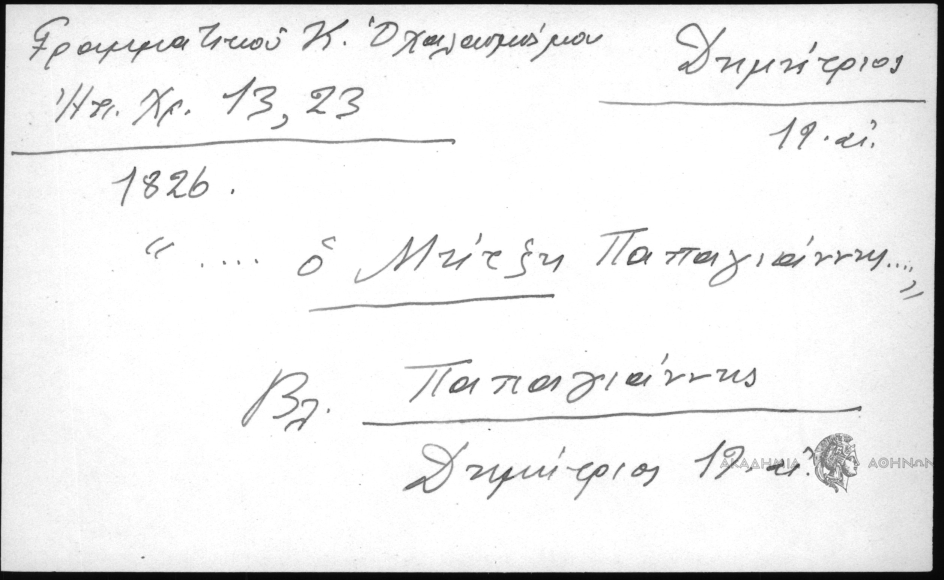 Γραμματικού Κ. Ὁ χαλασμός μου
Δημήτριος
Ἠπ. Χρ. 13, 23
19. αἰ.
1826.
“ .... ὁ Μήτζη Παπαγιάννης....”
Βλ. Παπαγιάννης
Δημήτριος 19. αἰ.
ΑΚΑΔΗΜΙΑ ΑΘΗΝΩΝ